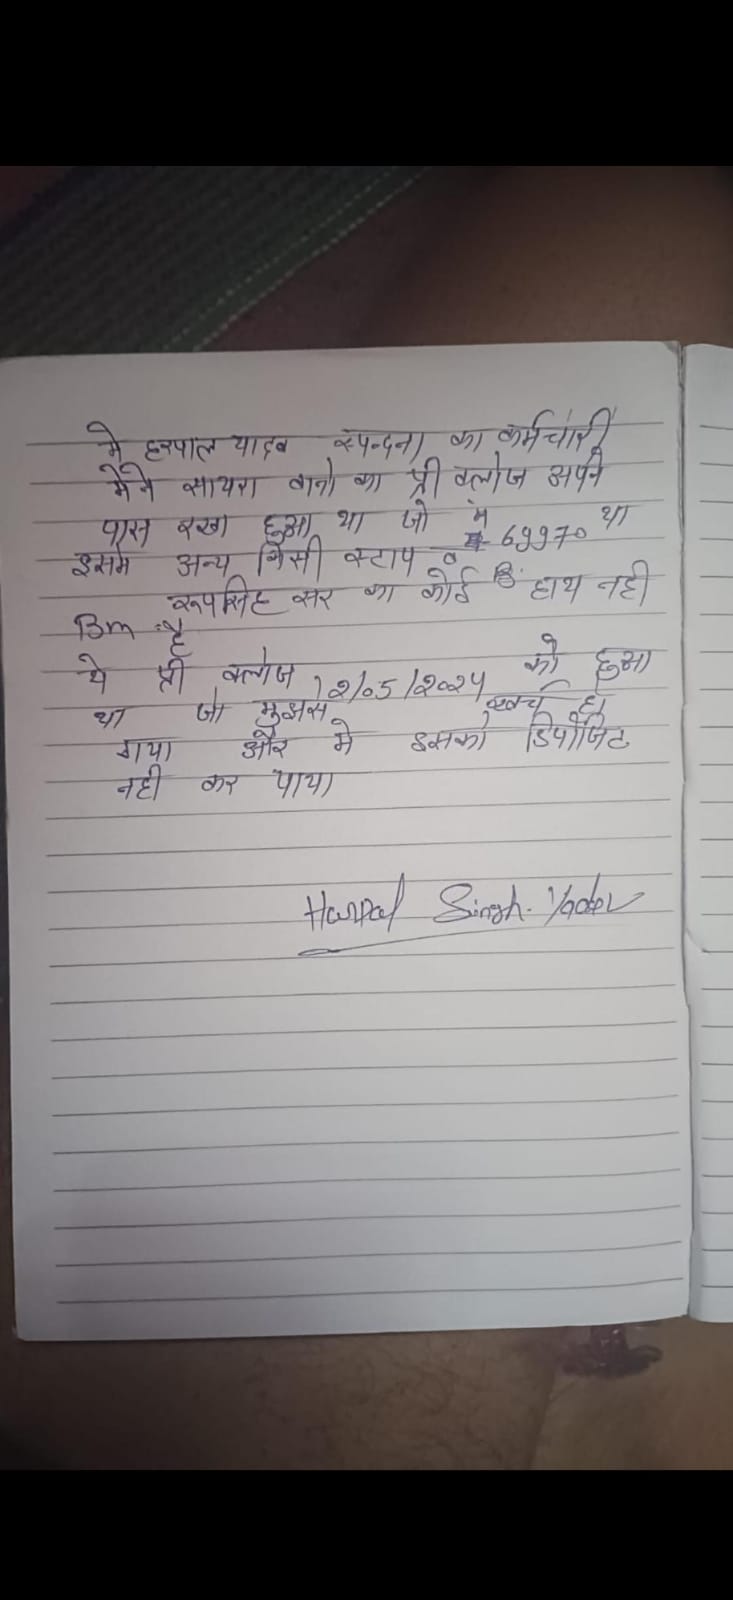 मे हरपाल यादव स्पन्दना का कर्मचारी
मेंने सायरा वानो का प्री क्लोज अपने
पास रखा हुआ था जो में 69970 था
इसमे अन्य किसी स्टाप व
Bm रूपसिह सर का कोई हाथ नही
है
ये प्री क्लोज 12/05/2024 को हुआ
था जो मुझसे खर्च हो
गया और मे इसको डिपोजिट
नही कर पाया
Harpal Singh. Yadav